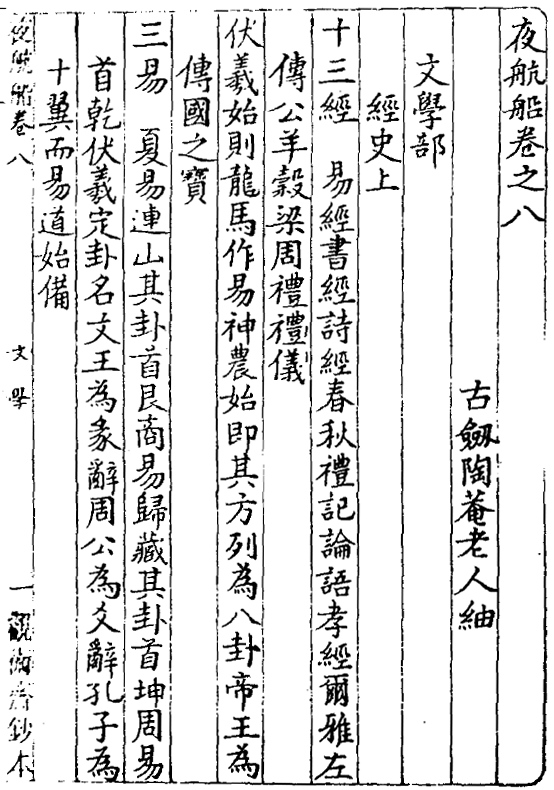 夜航船卷之八
古劔陶菴老人紬
文學部
經史上
十三經 易經書經詩經春秋禮記論語孝經爾雅左
傳公羊穀梁周禮禮儀
伏羲始則龍馬作易神農始即其方列為八卦帝王為
傳國之寶
三易 夏易連山其卦首艮商易歸藏其卦首坤周易
首乾伏羲定卦名文王為彖辭周公為爻辭孔子為
十翼而易道始備
夜航船卷八 文學 一 觀術齋鈔本